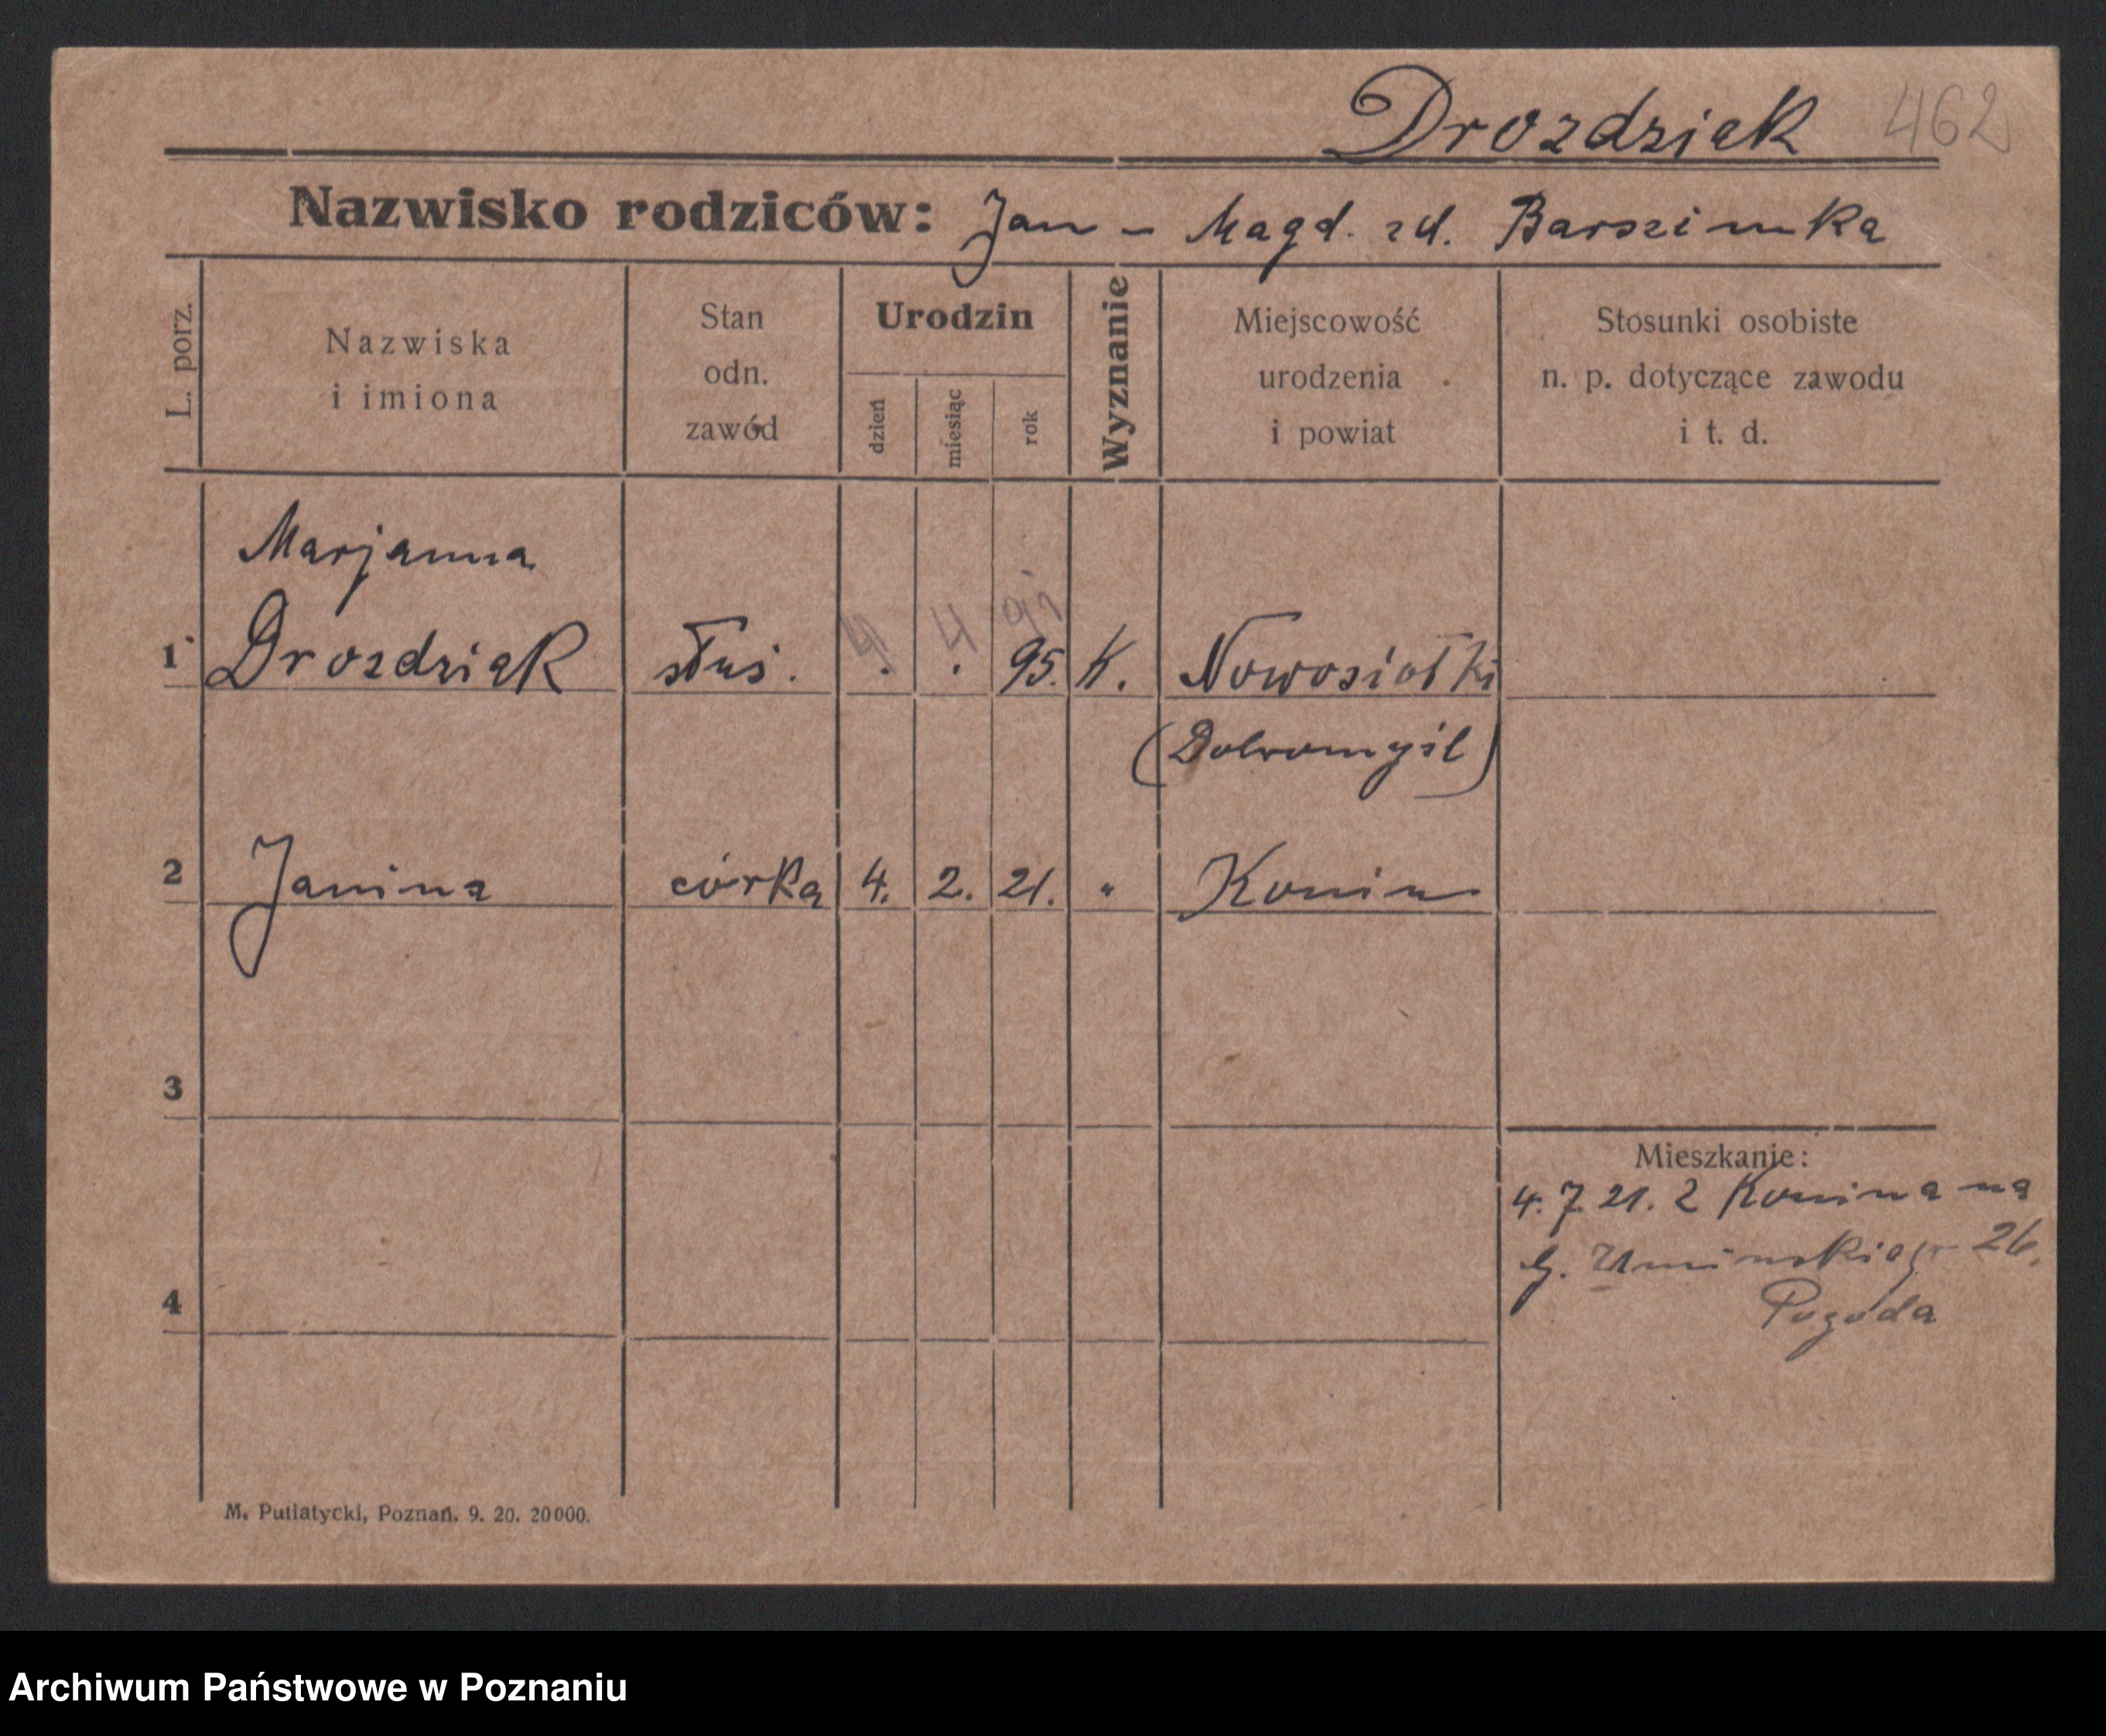 Drozdziak 462
Nazwisko rodziców: Jan - Magd. zd.
L. porz.
Nazwiska
i imiona
Stan
odn.
zawód
Urodzin
dzień
miesiąc
rok
Wyznanie
Miejscowość
urodzenia
i powiat
Stosunki osobiste
n. p. dotyczące zawodu
i t. d.
Marjanna
4. 4
1 Drozdziak służ. . . 95. K. Nowosiołki
(Dobromyśl)
2 Janina córka 4. 2. 21. " Konin
3
Mieszkanie:
4. 7. 21. z Konina na
Umińskiego 26.
4
Pogoda
M. Putiatycki, Poznań. 9. 20. 20000.
Archiwum Państwowe w Poznaniu